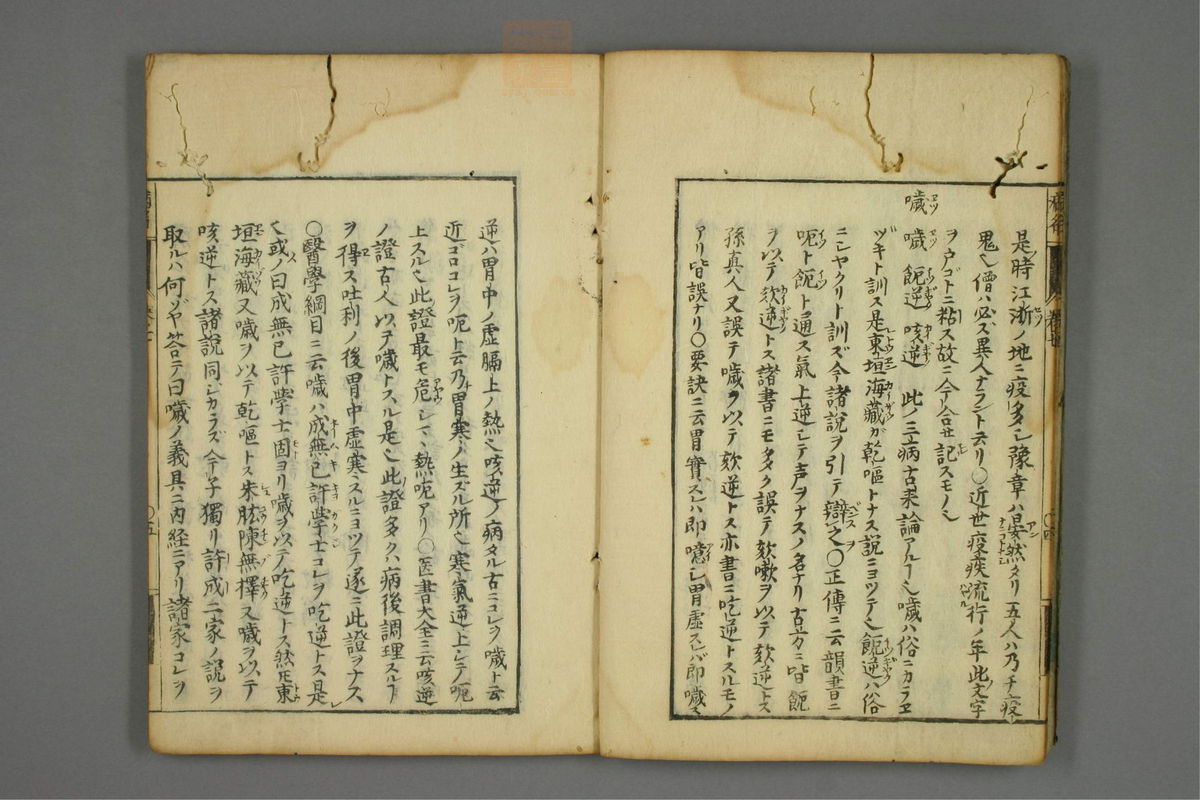 是時江浙ノ地ニ疫多シ豫章ハ晏然タリ五人ハ乃チ疫
鬼也僧ハ必ズ異人ナラント云リ〇近世疫疾流行ノ年此文字
ヲ戸ゴトニ粘ス故ニ今合せ記スモノ也
噦 噦 䭇逆 咳逆 此ノ三病古来論アルヿ也噦ハ俗ニカラヱ
ヅキト訓ス是東垣海藏ガ乾嘔トナス説ニヨツテ也䭇逆ハ俗
ニシヤクリト訓ズ今諸説ヲ引テ辯之〇正傳ニ云韻書ニ
呃ト䭇ト通ス氣上逆シテ声ヲナスノ名ナリ古方ニ皆䭇
ヲ以テ欬逆トス諸書ニモ多ク誤テ欬嗽ヲ以テ欬逆トス
孫真人又誤テ噦ヲ以テ欬逆トス亦書ニ吃逆トスルモノ
アリ皆誤ナリ〇要訣ニ云胃實スレハ即噫シ胃虚スレバ即噦ス
逆ハ胃中ノ虚膈上ノ熱也咳逆ノ病タル古ニコレヲ噦ト云
近ゴロコレヲ呃ト云乃胃寒ノ生ズル所也寒氣逆上シテ呃
上スル也此證最モ危シ亦熱呃アリ〇医書大全ニ云咳逆
ノ證古人以テ噦トスル是也此證多クハ病後調理スルヿ
ヲ得ス吐利ノ後胃中虚寒スルニヨツテ遂ニ此證ヲナス
〇醫學綱目ニ云噦ハ成無已許學士コレヲ吃逆トス是
也或ノ曰成無已許學士固ヨリ噦ヲ以テ吃逆トス然𪜈東
垣海藏又噦ヲ以テ乾嘔トス朱肱陳無擇又噦ヲ以テ
咳逆トス諸説同シカラズ今子獨リ許成二家ノ説ヲ
取ルハ何ゾヤ答テ曰噦ノ義具ニ内経ニアリ諸家コレヲ